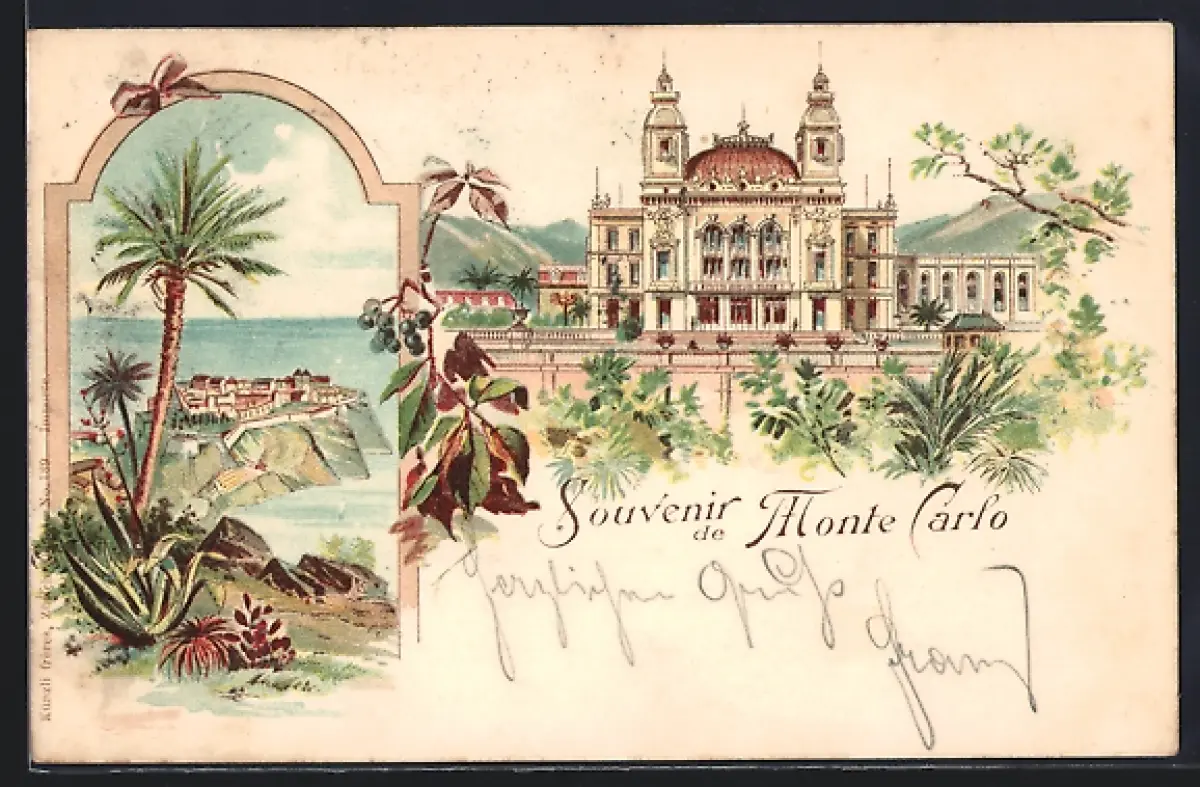 Souvenir
de Monte Carlo
Herzlichen Gruß
Franz
Künzli frères,
No. 139